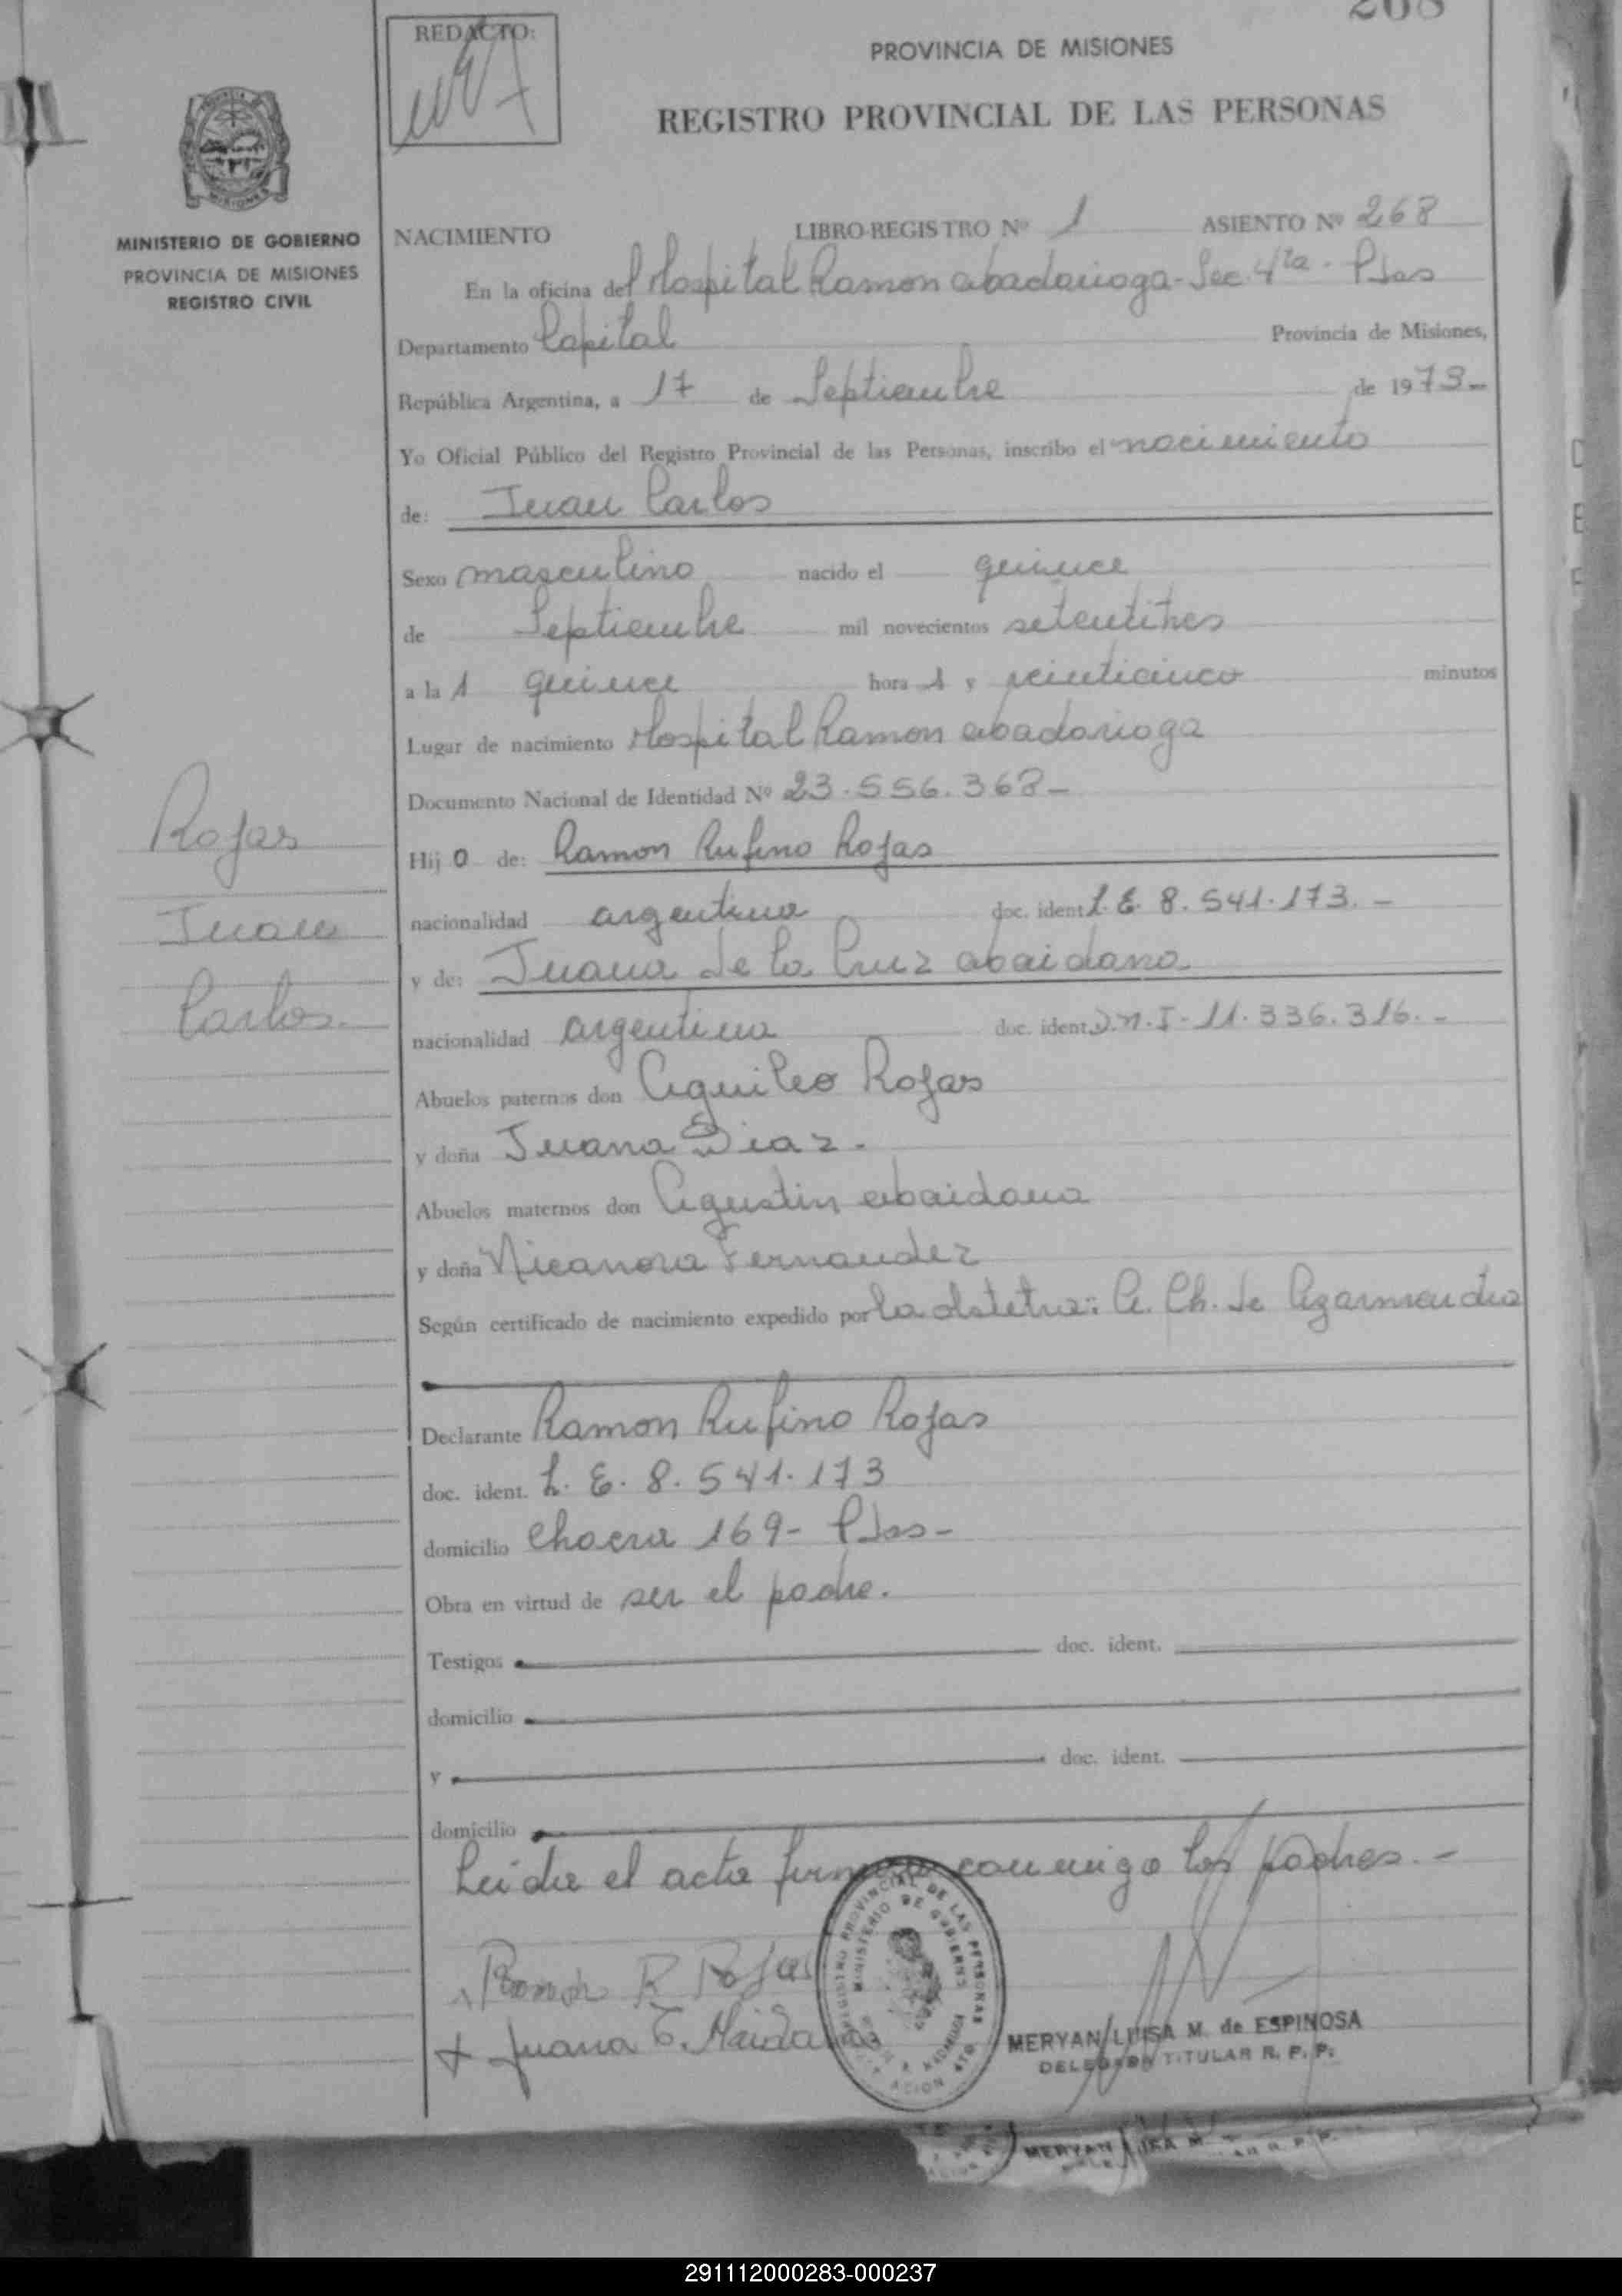 268
REDACTO:
PROVINCIA DE MISIONES
REGISTRO PROVINCIAL DE LAS PERSONAS
PROVINCIA DE
MISIONES
MINISTERIO DE GOBIERNO
PROVINCIA DE MISIONES
REGISTRO CIVIL
NACIMIENTO LIBRO-REGISTRO Nº 1 ASIENTO Nº 268
En la oficina del Hospital Ramon abadarioga - Sec. 4ta - Pdas
Departamento Capital Provincia de Misiones,
República Argentina, a 17 de Septiembre de 1973-
Yo Oficial Público del Registro Provincial de las Personas, inscribo el nacimiento
de: Juan Carlos
Sexo masculino nacido el quince
de Septiembre mil novecientos setentitres
a la s quince hora s y veinticinco minutos
Lugar de nacimiento Hospital Ramon abadarioga
Documento Nacional de Identidad Nº 23.556.368-
Rojas
Juan
Carlos.
Hij o de: Ramon Rufino Rojas
nacionalidad argentina doc. ident. L.E. 8.541.173.-
y de: Juana de la Cruz abaidana
nacionalidad argentina doc. ident. D.N.I- 11.336.316.-
Abuelos paternos don Aquileo Rojas
y doña Juana Diaz.
Abuelos maternos don Agustin abaidana
y doña Nicanora Fernandez
Según certificado de nacimiento expedido por la obstetra: A. Ch. de Azarmendia
Declarante Ramon Rufino Rojas
doc. ident. L. E. 8.541.173
domicilio Chacra 169- Pdas-
Obra en virtud de ser el padre.
Testigos doc. ident.
domicilio
y doc. ident.
domicilio
Leida el acta firman conmigo los padres.-
Ramon R Rojas
+ Juana C.
REGISTRO PROVINCIAL DE LAS PERSONAS
MINISTERIO DE GOBIERNO
MERYAN LUISA M. de ESPINOSA
DELEGADA TITULAR R. P. P.
MERYAN
291112000283-000237